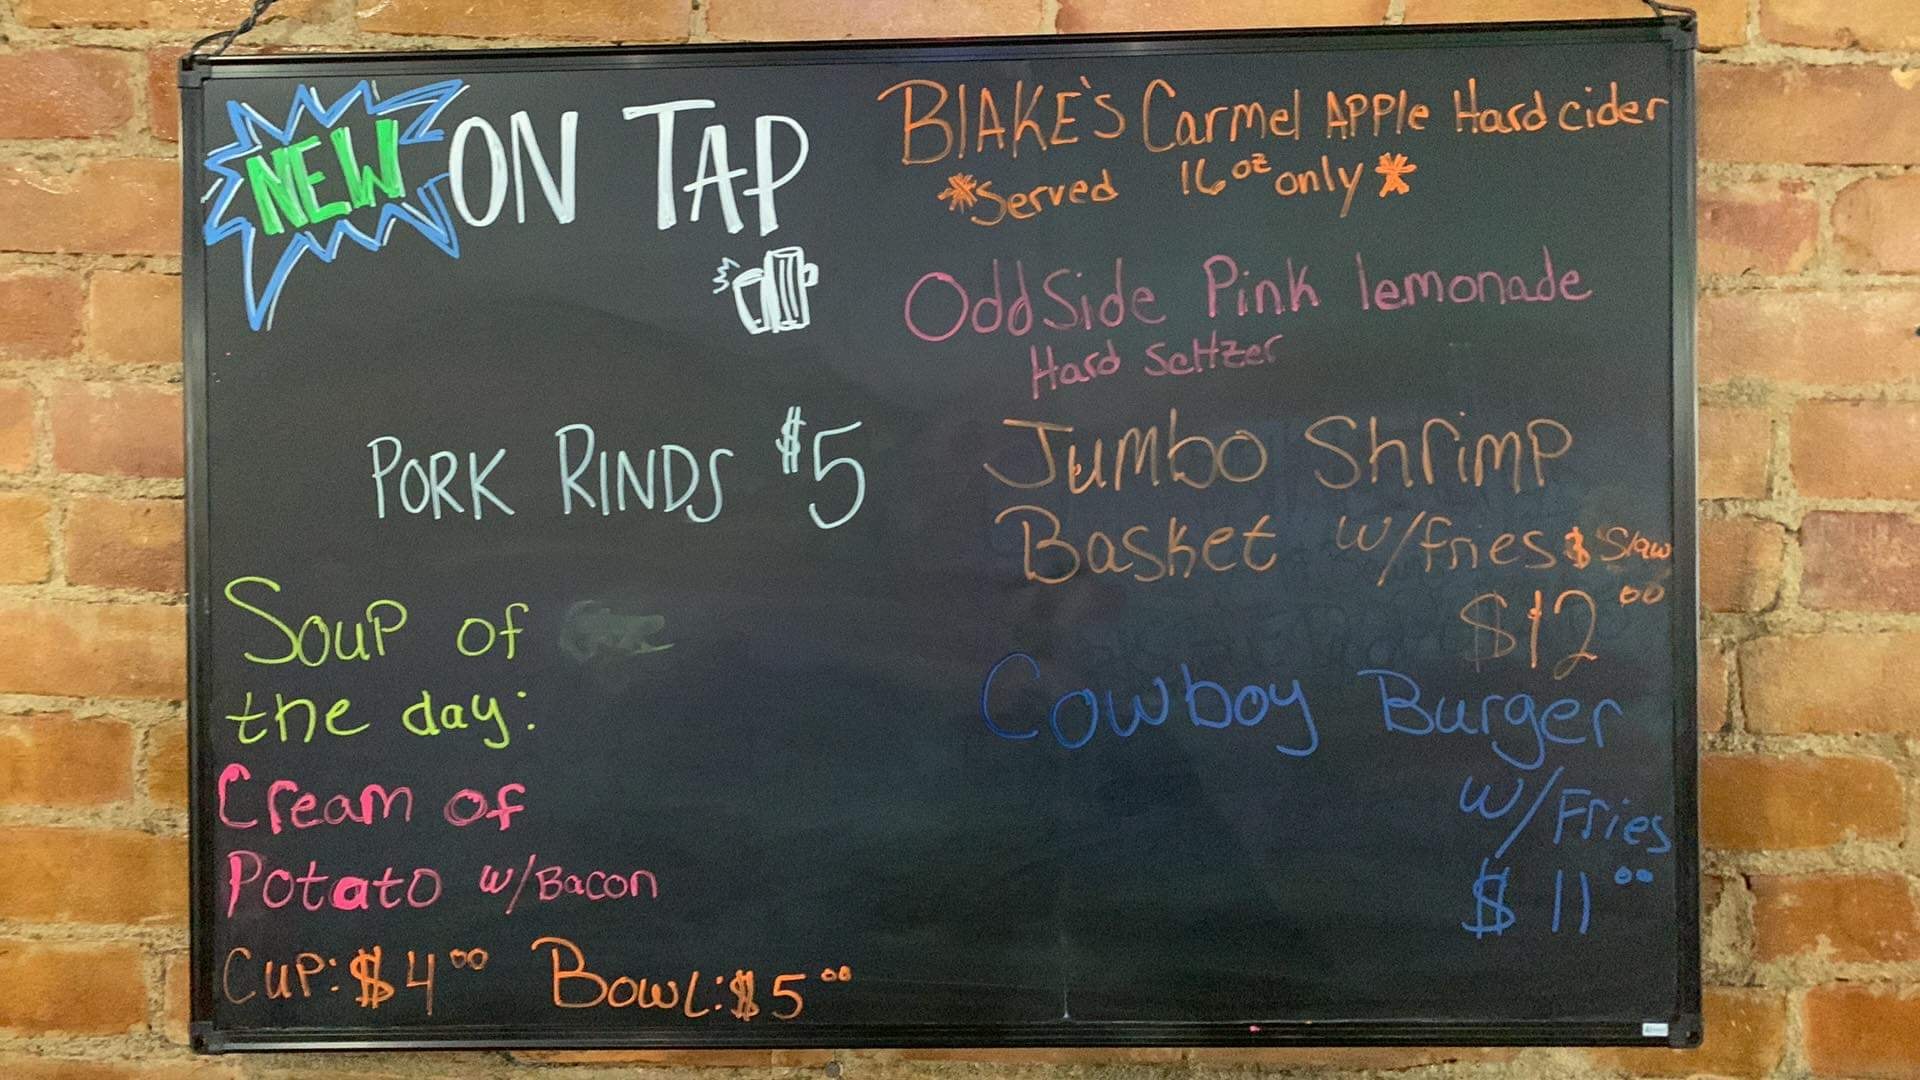 NEW ON TAP
PORK RINDS $5
Soup of
the day:
Cream of
Potato w/Bacon
Cup: $4.00 Bowl: $5.00
BlAKE's Carmel APPle Hard cider
*Served 16 oz only*
OddSide Pink lemonade
Hard Seltzer
Jumbo Shrimp
Basket w/fries & Slaw
$12.00
Cowboy Burger
w/Fries
$11.00